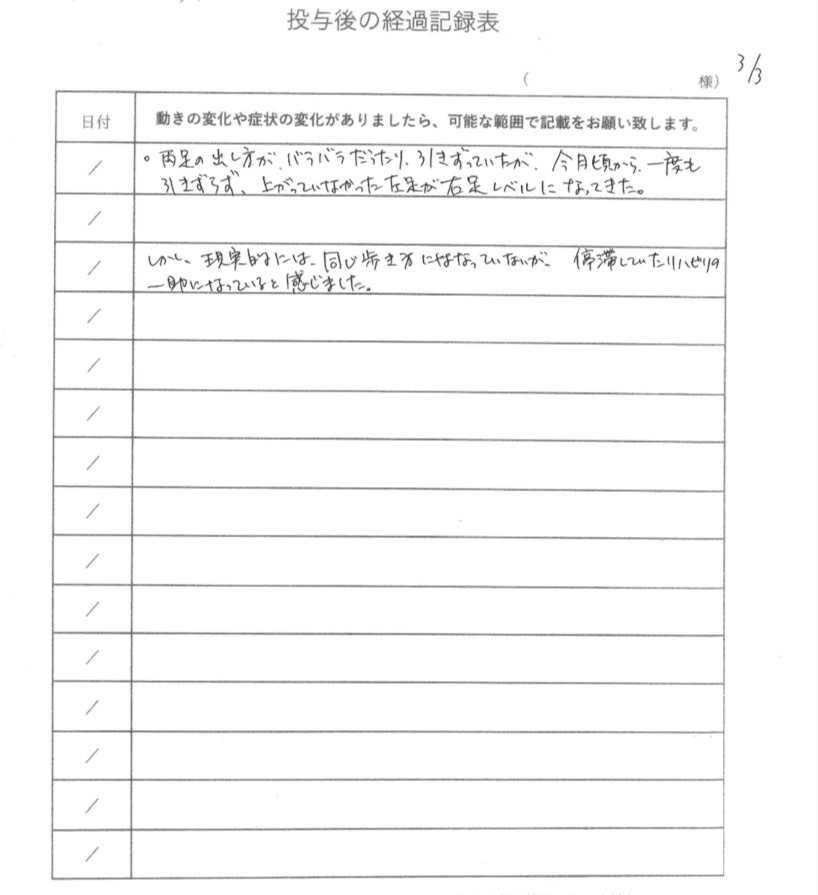 投与後の経過記録表
(　　　　　様)
3/3
日付
動きの変化や症状の変化がありましたら、可能な範囲で記載をお願い致します。
/
。両足の出し方が、バラバラだったり、引きずっていたが、今月頃から、一度も
引きずらず、上がっていなかった左足が右足レベルになってきた。
/
/
しかし、現実的には、同じ歩き方にはなっていないが、停滞していたリハビリの
一助になっていると感じました。
/
/
/
/
/
/
/
/
/
/
/
/